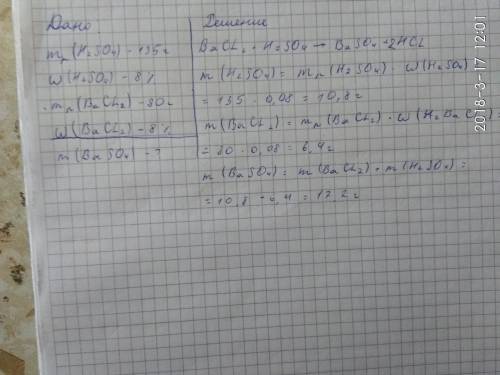 Дано
mр(H₂SO₄) - 135г
ω(H₂SO₄) - 8%
mр(BaCl₂) - 80г
ω(BaCl₂) - 8%
m(BaSO₄) - ?
Решение
BaCl₂ + H₂SO₄ → BaSO₄ + 2HCl
m(H₂SO₄) = mр(H₂SO₄) · ω(H₂SO₄)
= 135 · 0,08 = 10,8г
m(BaCl₂) = mр(BaCl₂) · ω(BaCl₂) =
= 80 · 0,08 = 6,4г
m(BaSO₄) = m(BaCl₂) + m(H₂SO₄) =
= 10,8 + 6,4 = 17,2г
2018-3-17 12:01